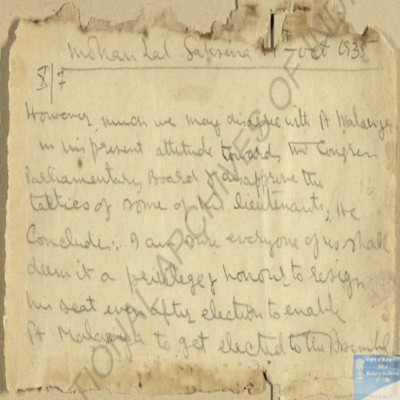 Mohan Lal Saksena 1st Oct 1935
X/7
However much we may disagree with Pt Malaviya
in his present attitude towards the Congress
Parliamentary Board & disapprove the
tactics of some of his lieutenants, He
Conclude:. I am sure everyone of us shall
deem it a privilege & honour to resign
his seat even after election to enable
Pt Malaviya to get elected to the Assembly
NATIONAL ARCHIVES OF INDIA